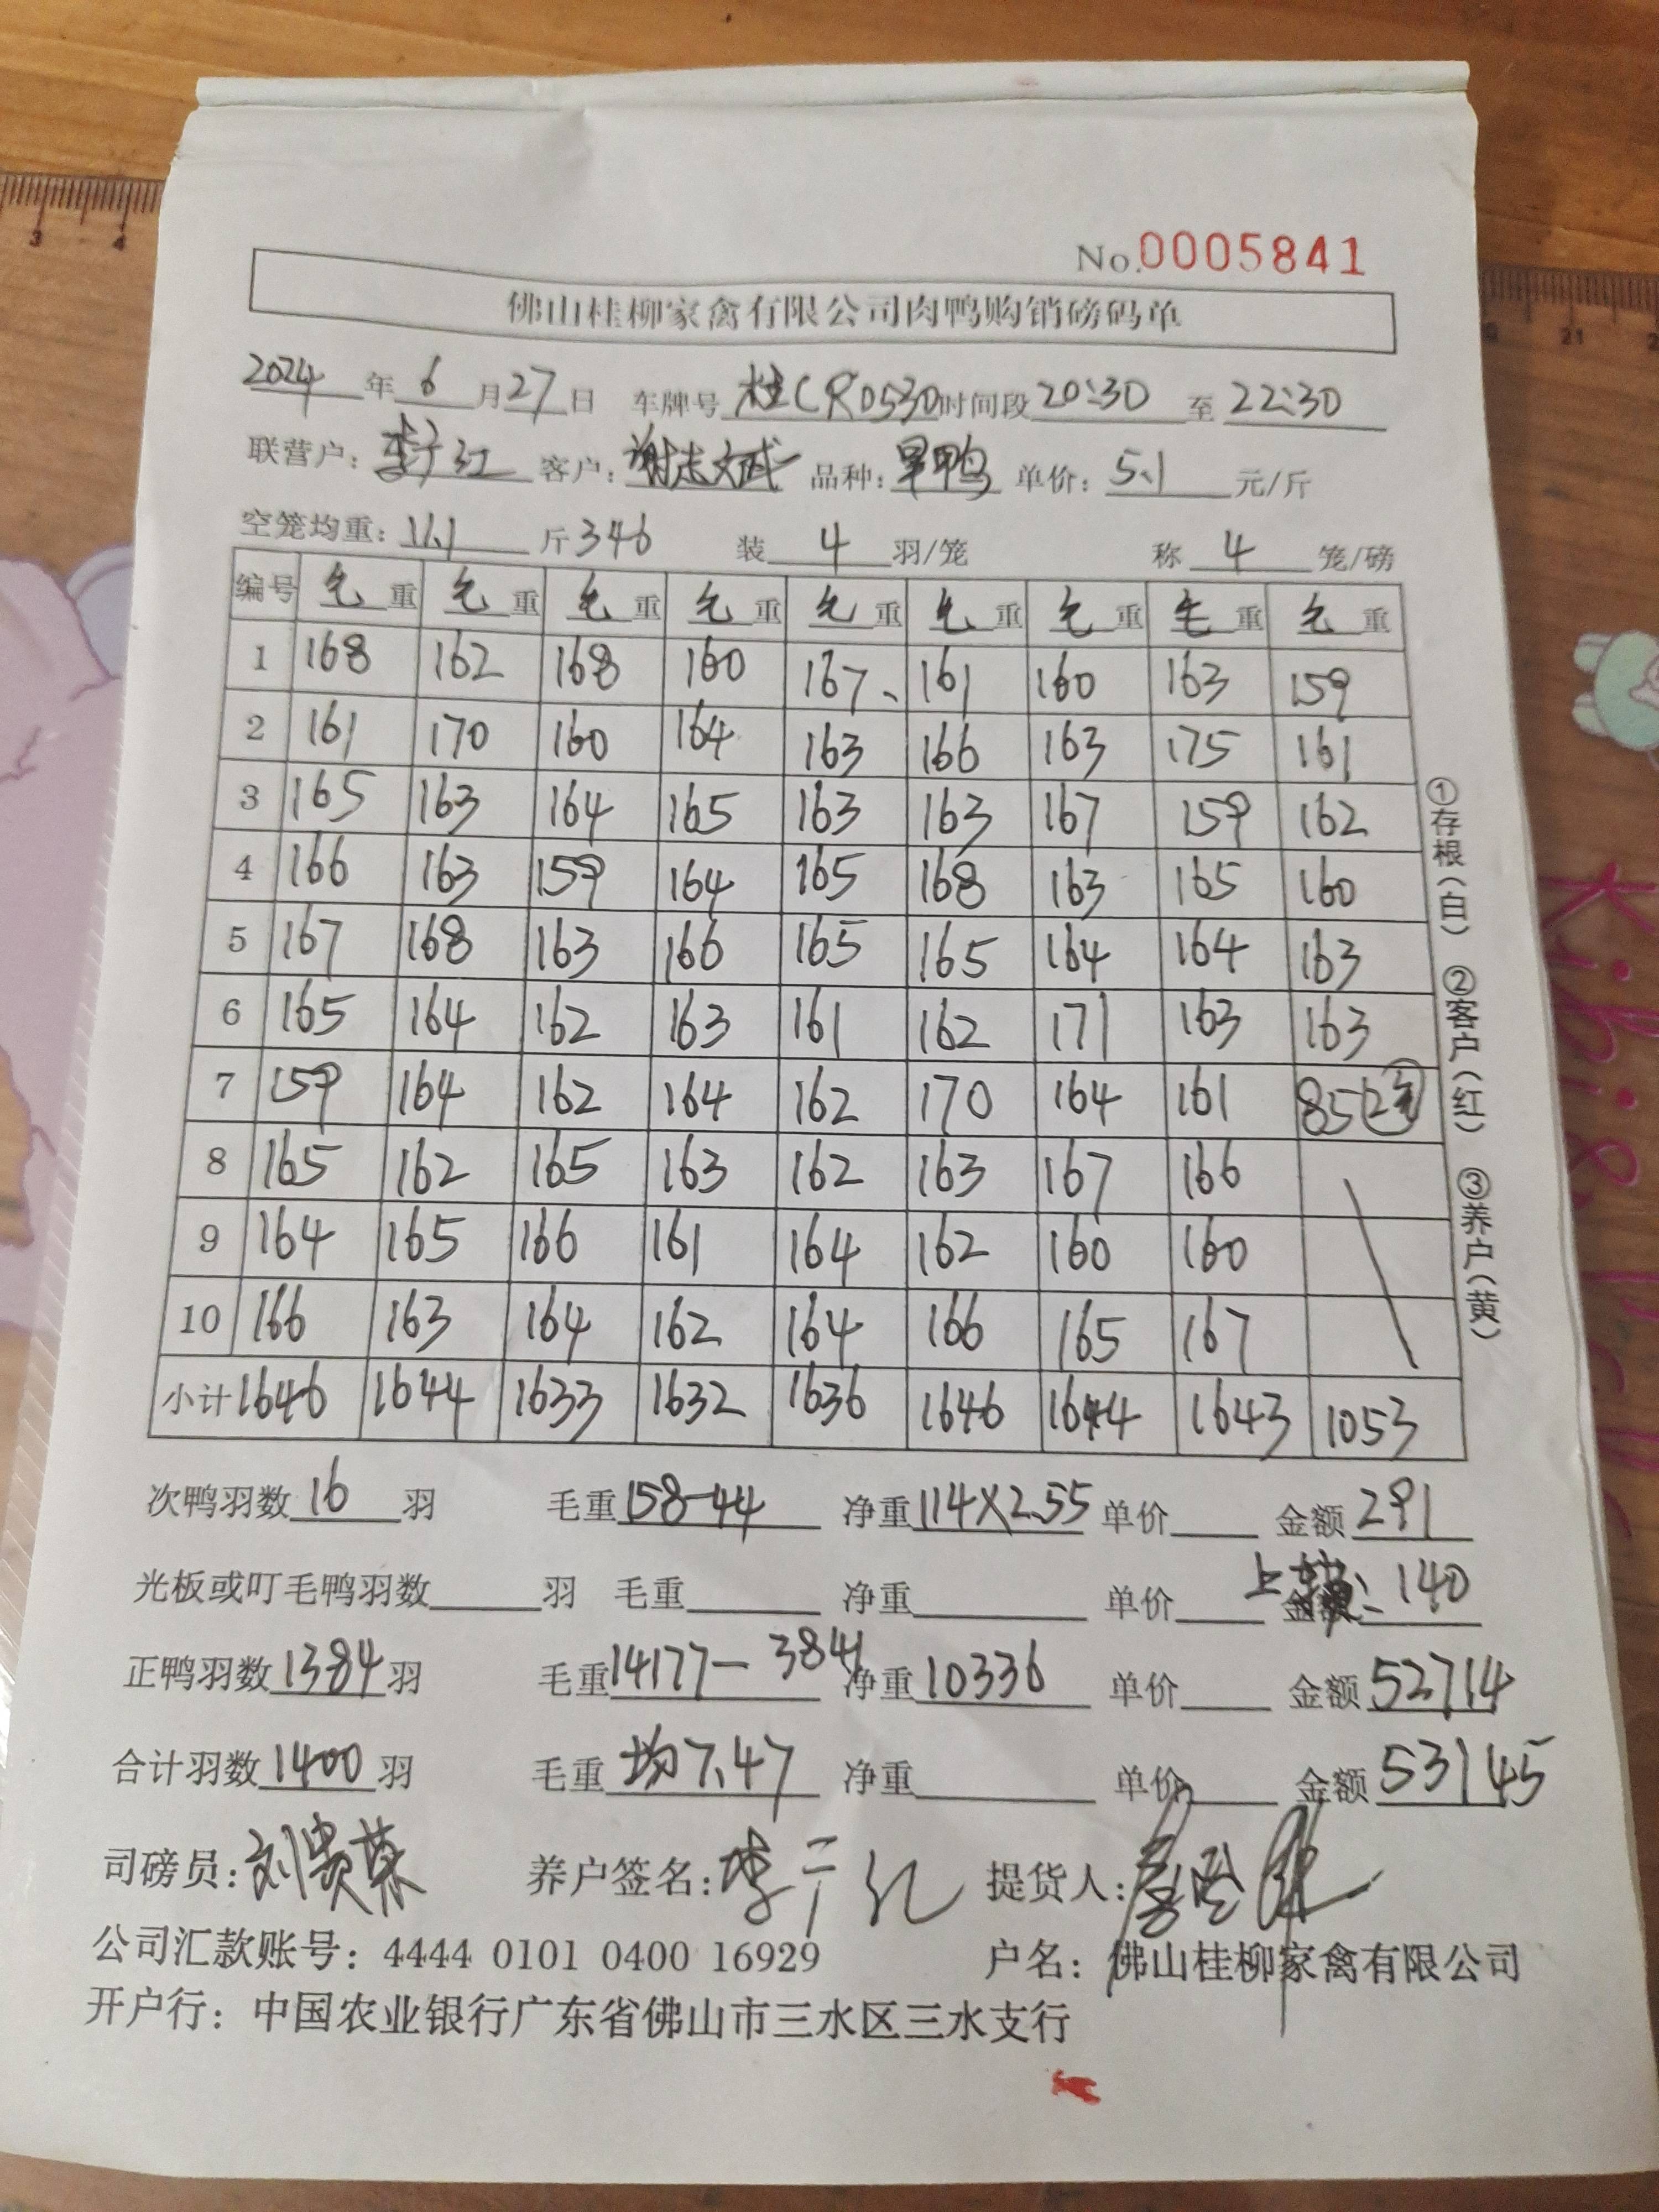 No.0005841
佛山桂柳家禽有限公司肉鸭购销磅码单
2024年6月27日 车牌号 桂CR0530 时间段 20:30 至 22:30
联营户: 李于红 客户: 谢志斌 品种: 旱鸭 单价: 5.1 元/斤
空笼均重: 11.1 斤 346 装 4 羽/笼 称 4 笼/磅
编号 毛重 毛重 毛重 毛重 毛重 毛重 毛重 毛重 毛重
1 168 162 168 160 167、 161 160 163 159
2 161 170 160 164 163 166 163 175 161
3 165 163 164 165 163 163 167 159 162
4 166 163 159 164 165 168 163 165 160
5 167 168 163 166 165 165 164 164 163
6 165 164 162 163 161 162 171 163 163
7 159 164 162 164 162 170 164 161 85 2笼
8 165 162 165 163 162 163 167 166
9 164 165 166 161 164 162 160 160
10 166 163 164 162 164 166 165 167
小计 1646 1644 1633 1632 1636 1646 1644 1643 1053
①存根(白) ②客户(红) ③养户(黄)
次鸭羽数 16 羽 毛重 158-44 净重 114X2.55 单价 金额 291
光板或叮毛鸭羽数 羽 毛重 净重 单价 金额 140
正鸭羽数 1384 羽 毛重 14177-3841 净重 10336 单价 金额 52714
合计羽数 1400 羽 毛重 均7.47 净重 单价 金额 53145
司磅员: 刘贵荣 养户签名: 李于红 提货人:
公司汇款账号: 4444 0101 0400 16929 户名: 佛山桂柳家禽有限公司
开户行: 中国农业银行广东省佛山市三水区三水支行